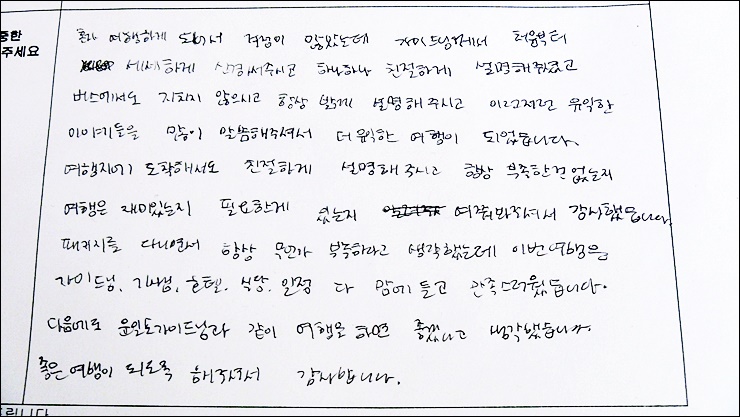 중한
주세요
혼자 여행하게 되어서 걱정이 많았는데 가이드님께서 처음부터
세세하게 신경써주시고 하나하나 친절하게 설명해주셨고
버스에서도 지치지 않으시고 항상 밝게 설명해 주시고 이런저런 유익한
이야기들을 많이 말씀해주셔서 더 유익한 여행이 되었습니다.
여행지에 도착해서도 친절하게 설명해 주시고 항상 부족한건 없는지
여행은 재미있는지 필요한게 있는지 여쭤봐주셔서 감사했습니다.
패키지를 다니면서 항상 뭔가 부족하다고 생각했는데 이번여행은
가이드님, 기사님, 호텔, 식당, 일정 다 맘에 들고 만족스러웠습니다.
다음에도 윤일도가이드님과 같이 여행을 하면 좋겠다고 생각했습니다.
좋은여행이 되도록 해주셔서 감사합니다.
드립니다